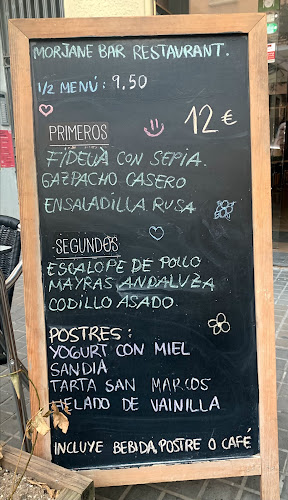 MORJANE BAR RESTAURANT.
1/2 MENÚ: 9.50
12€
PRIMEROS
FIDEUÀ CON SEPIA.
GAZPACHO CASERO
ENSALADILLA RUSA
SEGUNDOS
ESCALOPE DE POLLO
MAYRAS ANDALUZA
CODILLO ASADO.
POSTRES:
YOGURT CON MIEL
SANDIA
TARTA SAN MARCOS
HELADO DE VAINILLA
INCLUYE BEBIDA, POSTRE O CAFÉ